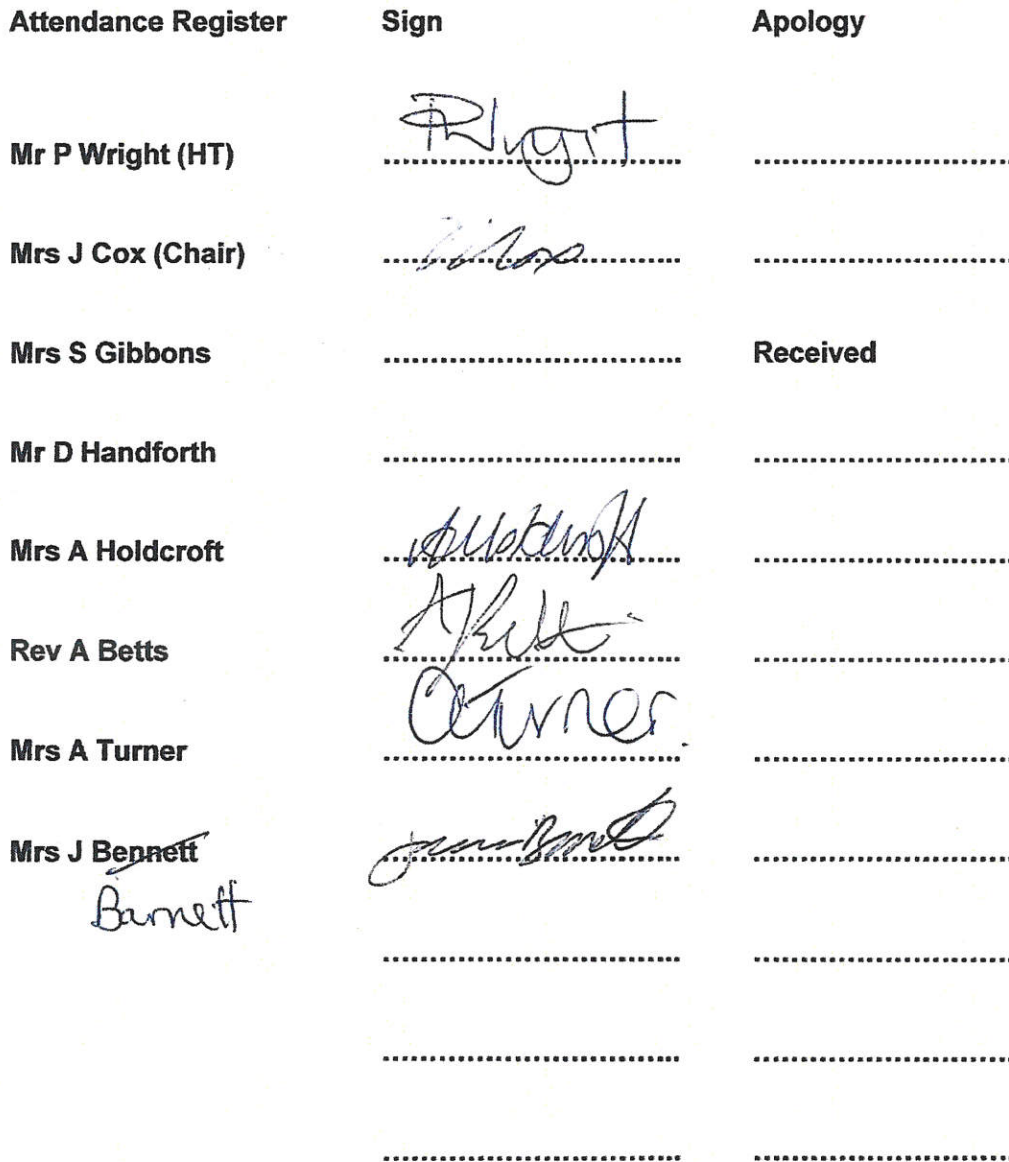 Attendance Register Sign Apology
Mr P Wright (HT) PWright ..............................
Mrs J Cox (Chair) J Cox ..............................
Mrs S Gibbons .............................. Received
Mr D Handforth .............................. ..............................
Mrs A Holdcroft AHoldcroft ..............................
Rev A Betts A Betts ..............................
Mrs A Turner ATurner. ..............................
Mrs J Bennett Barnett ..............................
Barnett
.............................. ..............................
.............................. ..............................
.............................. ..............................